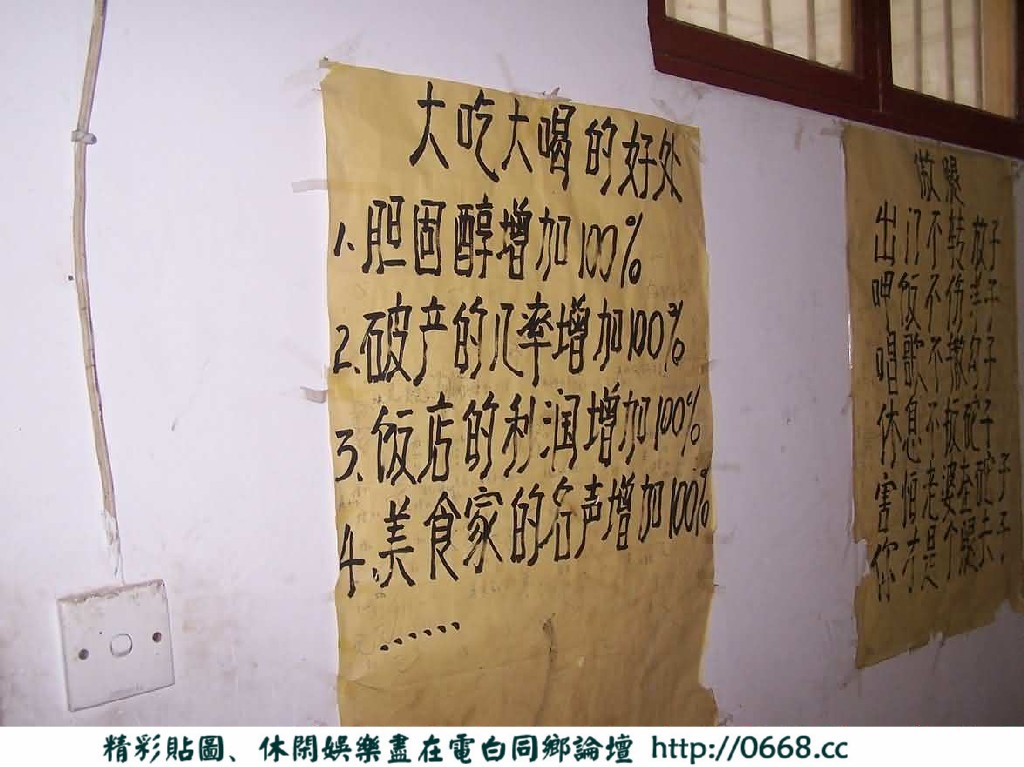 大吃大喝的好处
1、胆固醇增加100%
2、破产的几率增加100%
3、饭店的利润增加100%
4、美食家的名声增加100%
......
出门不转
呷饭不
唱歌不 句子
休息不
害怕老婆
你才是个
精彩貼圖、休閑娛樂盡在電白同鄉論壇 http://0668.cc